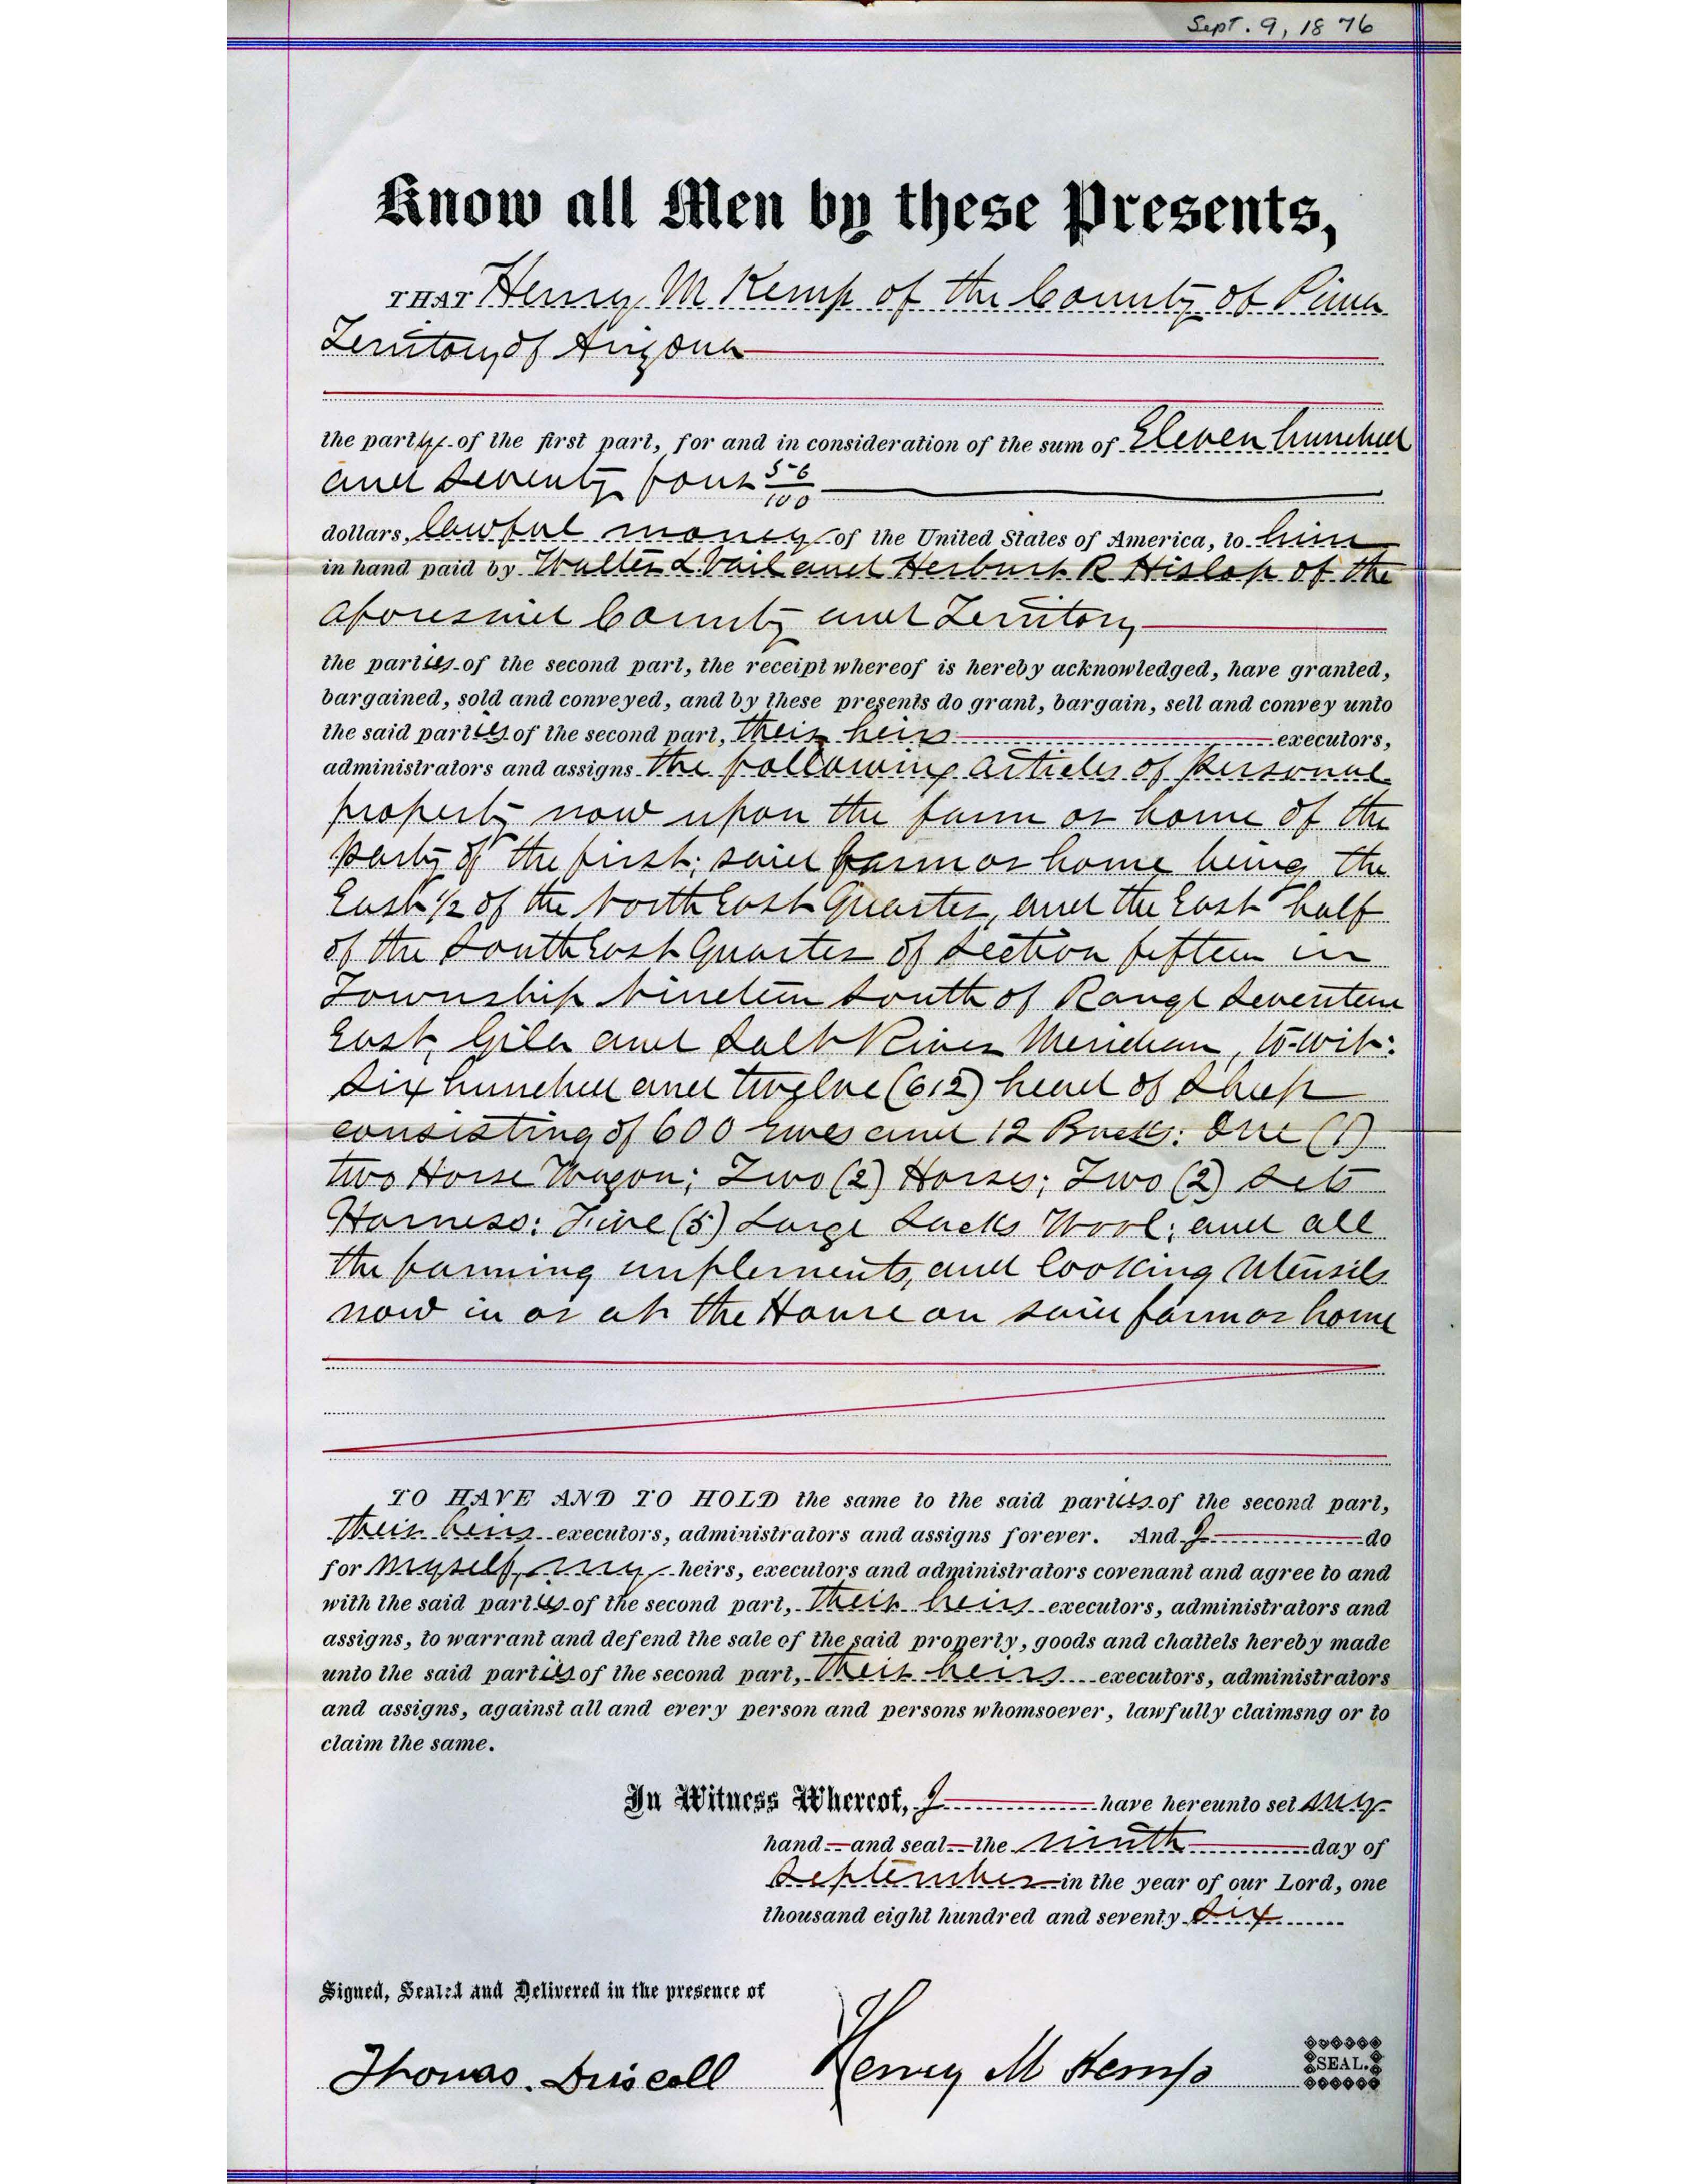 Sept. 9, 1876
Know all Men by these Presents,
THAT Henry M Kemp of the County of Pima
Territory of Arizona
the party of the first part, for and in consideration of the sum of Eleven hundred
and seventy four 56/100
dollars, lawful money of the United States of America, to him
in hand paid by Walter L Vail and Herbert R Hislop of the
aforesaid County and Territory
the parties of the second part, the receipt whereof is hereby acknowledged, have granted,
bargained, sold and conveyed, and by these presents do grant, bargain, sell and convey unto
the said parties of the second part, their heirs executors,
administrators and assigns the following articles of personal
property now upon the farm or home of the
party of the first; said farm or home being the
East 1/2 of the North East Quarter, and the East half
of the South East Quarter of Section fifteen in
Township Nineteen South of Range Seventeen
East, Gila and Salt River Meridian, to-wit:
Six hundred and twelve (612) head of Sheep
consisting of 600 Ewes and 12 Bucks: One (1)
two Horse Wagon; Two (2) Horses; Two (2) Sets
Harness: Five (5) Large Sacks Wool; and all
the farming implements, and Cooking Utensils
now in or at the House on said farm or home
TO HAVE AND TO HOLD the same to the said parties of the second part,
their heirs executors, administrators and assigns forever. And I do
for myself, my heirs, executors and administrators covenant and agree to and
with the said parties of the second part, their heirs executors, administrators and
assigns, to warrant and defend the sale of the said property, goods and chattels hereby made
unto the said parties of the second part, their heirs executors, administrators
and assigns, against all and every person and persons whomsoever, lawfully claimsng or to
claim the same.
In Witness Whereof, I have hereunto set my
hand and seal the ninth day of
September in the year of our Lord, one
thousand eight hundred and seventy six
Signed, Sealed and Delivered in the presence of
Thomas Driscoll Henry M Kemp SEAL.